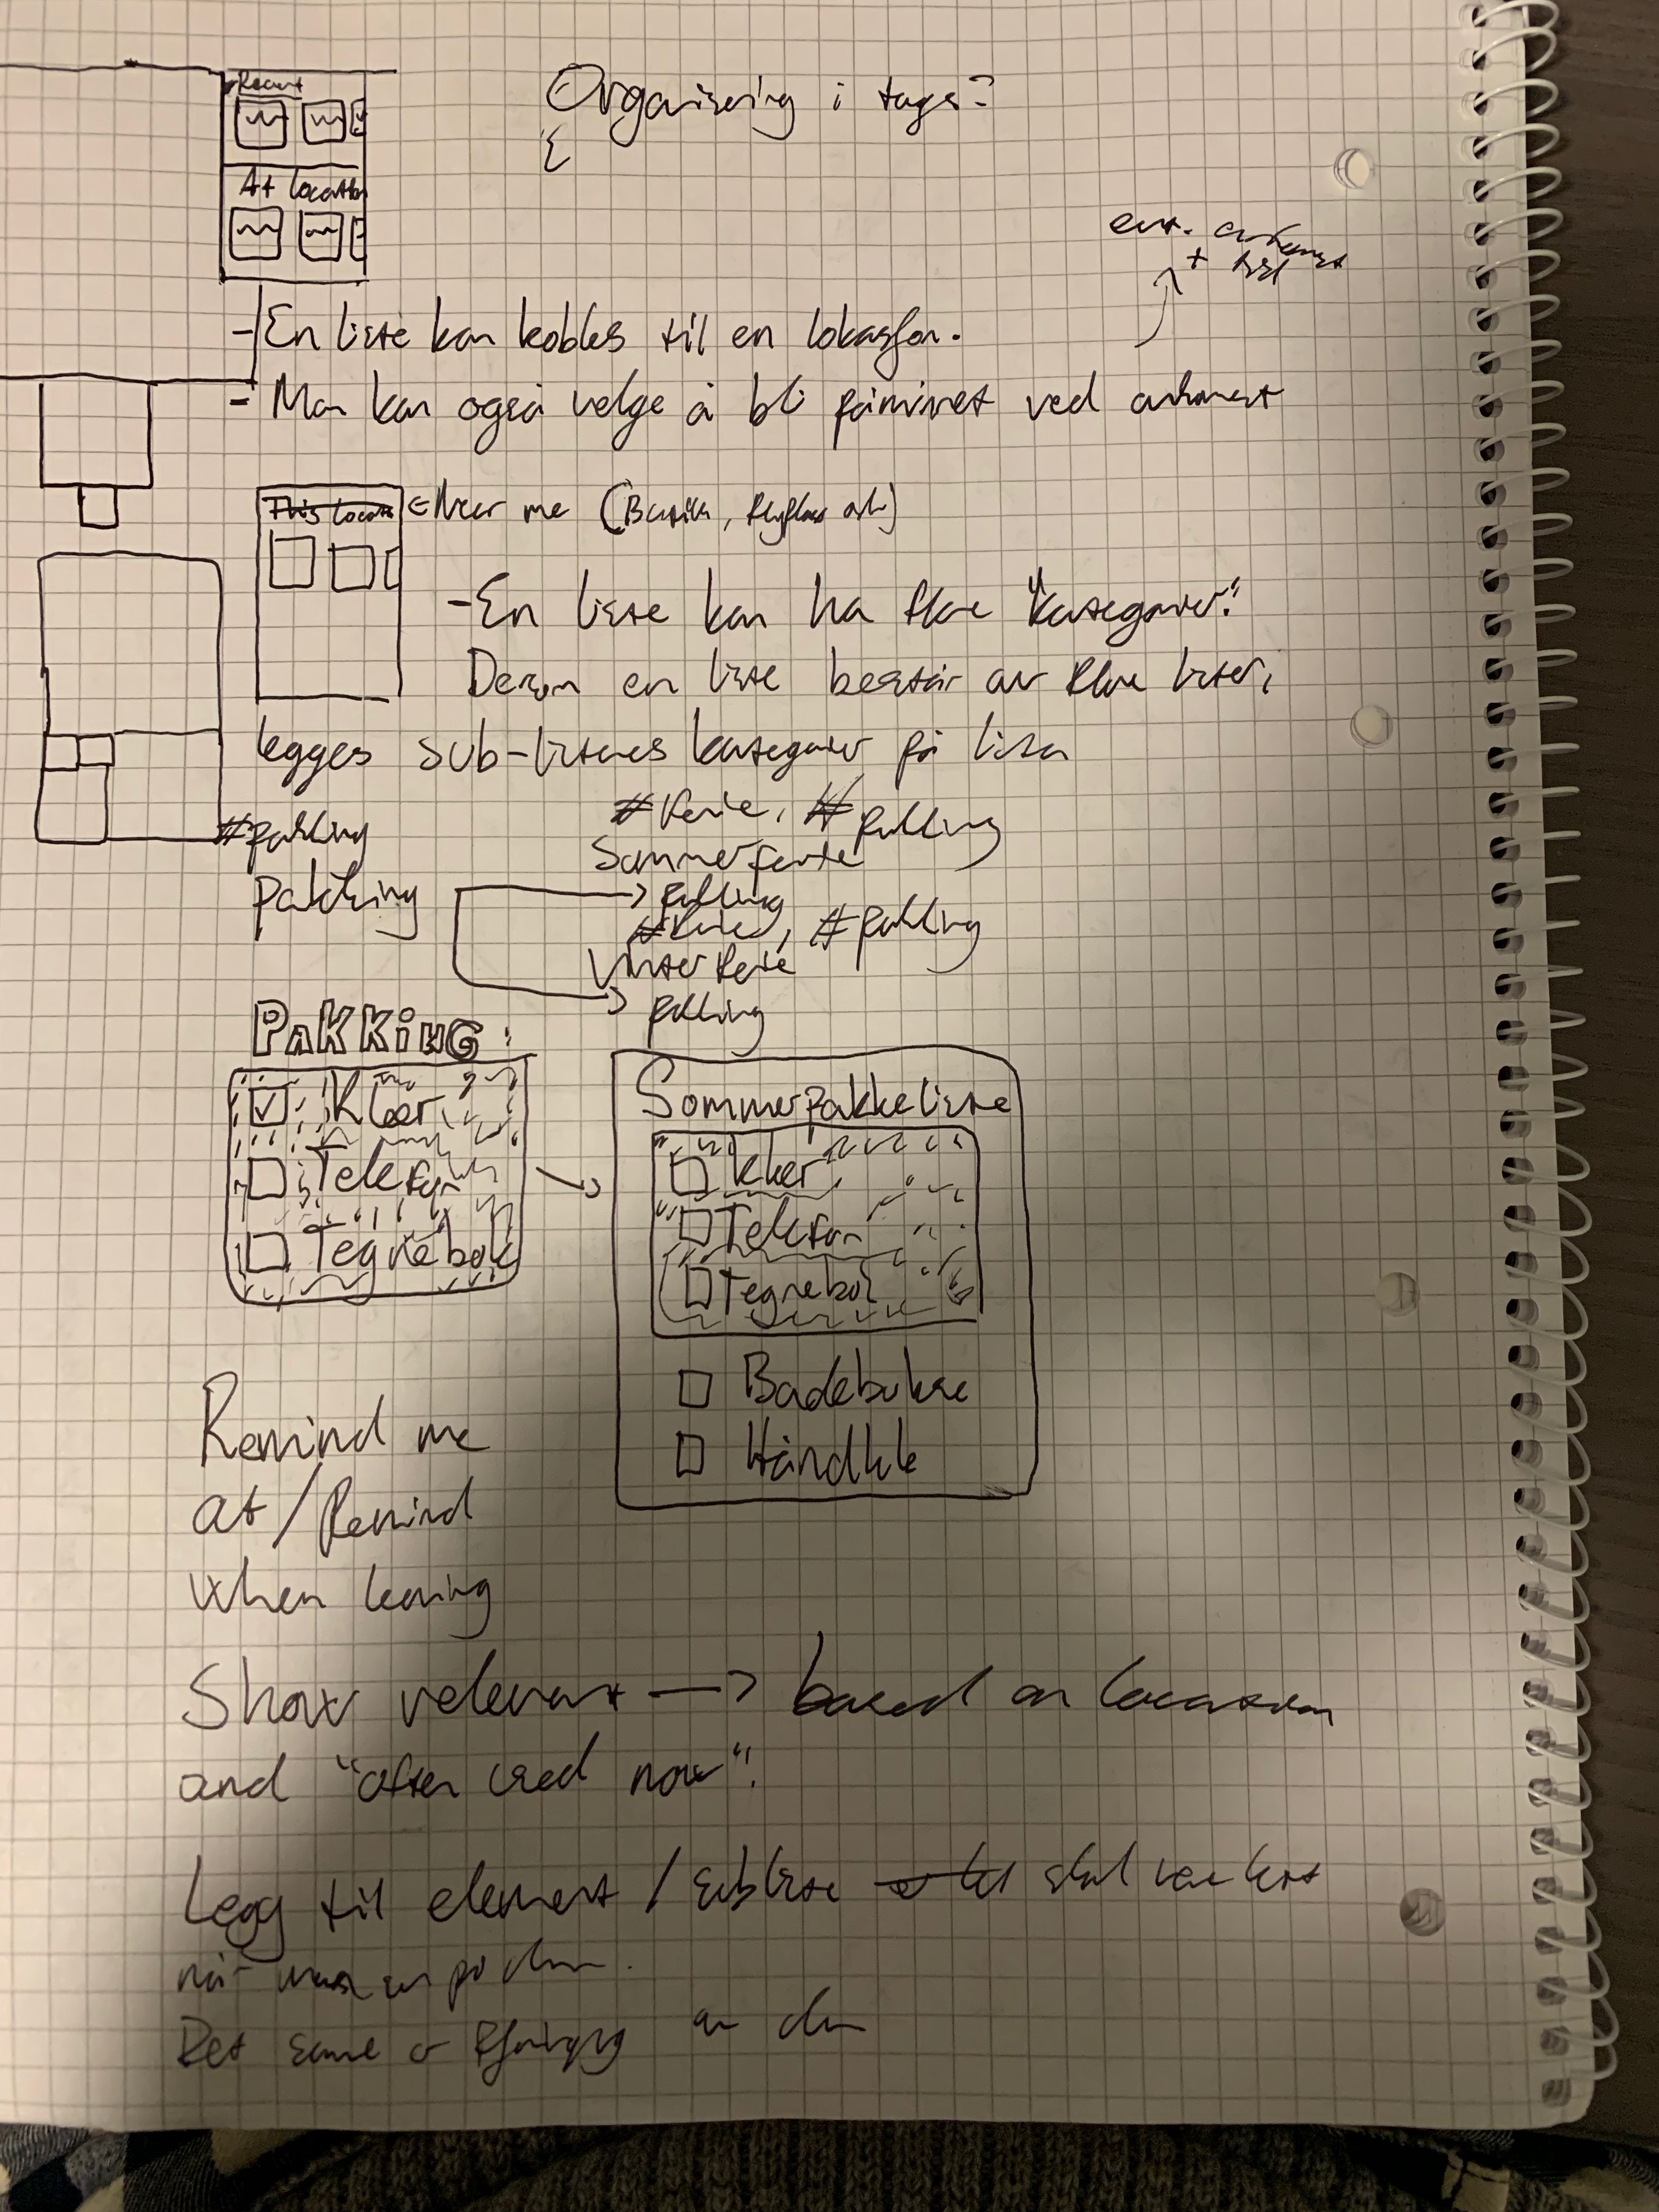 Recent
At location
Organisering i tags?
- En liste kan kobles til en lokasjon.
- Man kan også velge å bli påminnet ved ankomst
evt. ankomst
+ tid
This locat
Near me (Butikk, flyplass osv)
- En liste kan ha flere "kategorier".
Dersom en liste består av flere lister,
legges sub-listenes kategorier på lista
#pakking
pakking
#ferie, #pakking
Sommerferie
pakking
#ferie, #pakking
Vinterferie
pakking
PAKKING:
Klær
Telefon
Tegnebok
Sommerpakkeliste
Klær
Telefon
Tegnebok
Badebukse
Håndkle
Remind me
at / Remind
when leaving
Show relevant → based on location
and "often used now".
Legg til element / subliste skal være
når man er på den.
Det samme